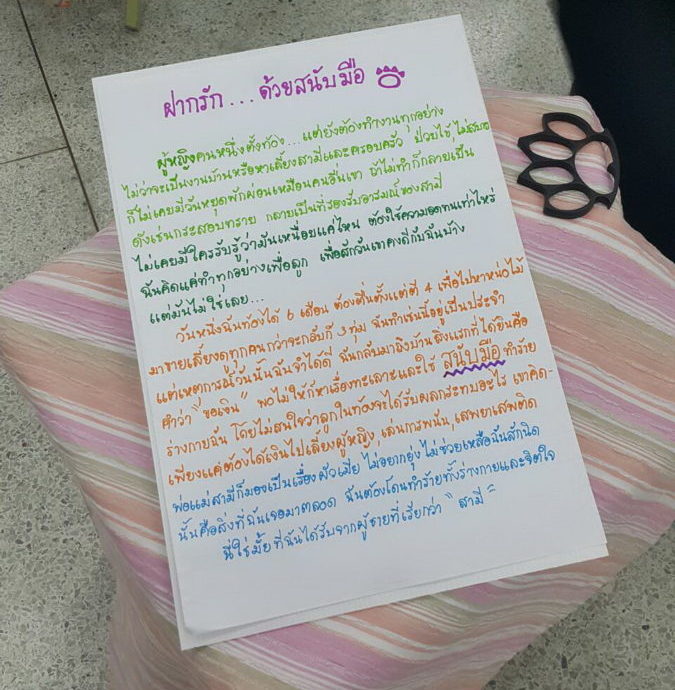 ฝากรัก...ด้วยสนับมือ
ผู้หญิงคนหนึ่งตั้งท้อง...แต่ยังต้องทำงานทุกอย่าง
ไม่ว่าจะเป็นงานบ้านหรือหาเลี้ยงสามีและครอบครัว ป่วยไข้, ไม่สบาย
ก็ไม่เคยมีวันหยุดพักผ่อนเหมือนคนอื่นเขา ถ้าไม่ทำก็กลายเป็น
ดังเช่นกระสอบทราย กลายเป็นที่รองรับอารมณ์ของสามี
ไม่เคยมีใครรับรู้ว่ามันเหนื่อยแค่ไหน ต้องใช้ความอดทนเท่าไหร่
ฉันคิดแค่ทำทุกอย่างเพื่อลูก เพื่อสักวันเขาคงดีกับฉันบ้าง
แต่มันไม่ใช่เลย...
วันหนึ่งฉันท้องได้ 6 เดือน ต้องตื่นตั้งแต่ตี 4 เพื่อไปหาหน่อไม้
มาขายเลี้ยงดูทุกคนกว่าจะกลับก็ 3 ทุ่ม ฉันทำเช่นนี้อยู่เป็นประจำ
แต่เหตุการณ์วันนั้นฉันจำได้ดี ฉันกลับมาถึงบ้านสิ่งแรกที่ได้ยินคือ
คำว่า "ขอเงิน" พอไม่ให้ก็หาเรื่องทะเลาะและใช้ สนับมือ ทำร้าย
ร่างกายฉัน โดยไม่สนใจว่าลูกในท้องจะได้รับผลกระทบอะไร เขาคิด-
เพียงแค่ต้องได้เงินไปเลี้ยงผู้หญิง, เล่นการพนัน, เสพยาเสพติด
พ่อแม่สามีก็มองเป็นเรื่องผัวเมีย ไม่อยากยุ่งไม่ช่วยเหลือฉันสักนิด
นั้นคือสิ่งที่ฉันเจอมาตลอด ฉันต้องโดนทำร้ายทั้งร่างกายและจิตใจ
นี่ใช่มั้ย ที่ฉันได้รับจากผู้ชายที่เรียกว่า "สามี"